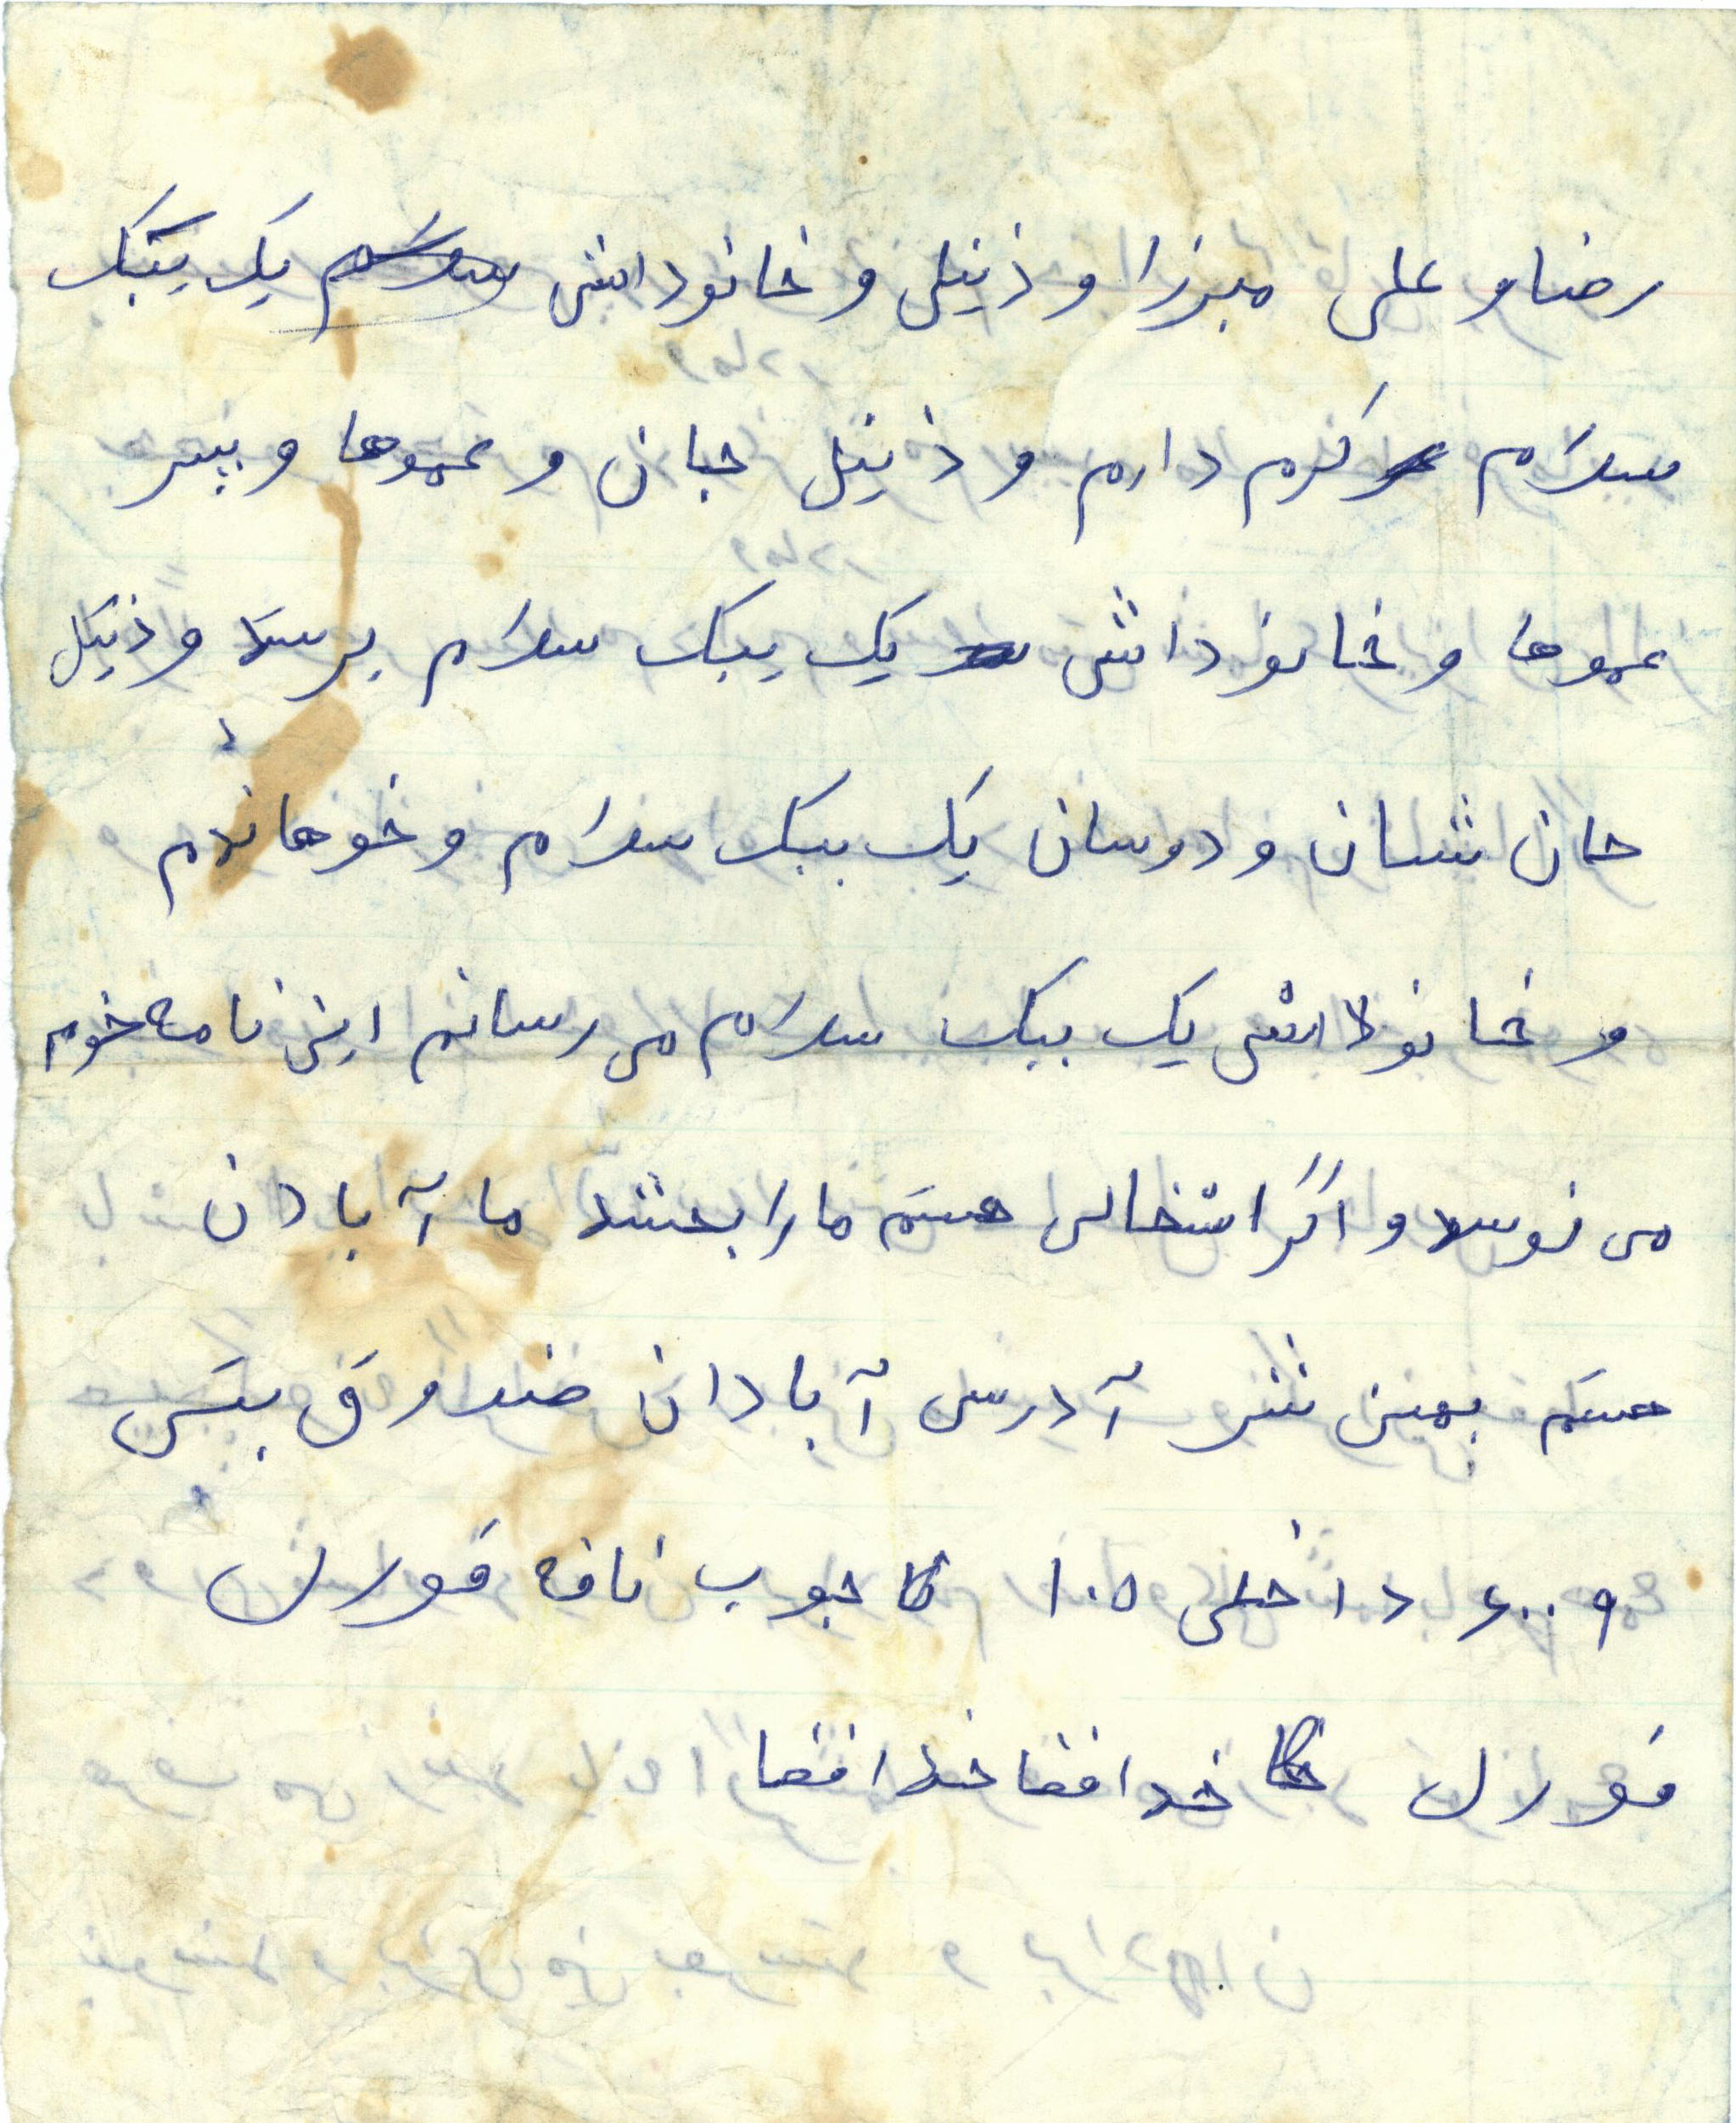 رضا و علی میرزا و ذینل و خانوداش یک یبک
سلام گرم دارم و ذینل جان و عموها و بپسر
عموها و خانوداش یک یبک سلام برسد و ذینل
جان شسان و دوسان یک ببک سلام و خوهاندم
و خانوداش یک ببک سلام می رسانم این نامه خوم
می نوسد و اگر اشخالی هستم ما را بخشد ما آبادان
هستم بهمن شر آدرس آبادان صندوق بتسی
۶۰۰۹ داخلی ۱۰۵ جوب نافه فورل
فورل خدا افضا خدا افضا